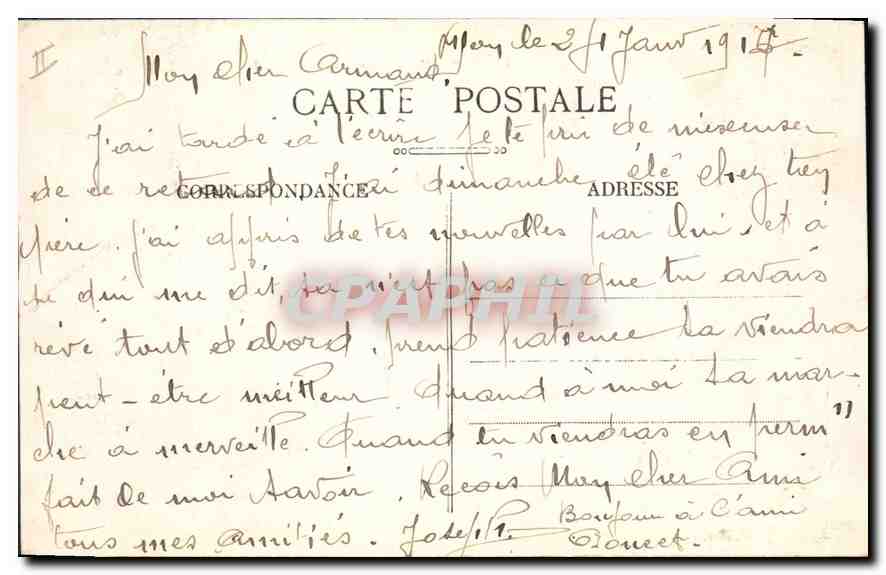 II
Mon cher Armand
le 21 Janv 191
CARTE POSTALE
J'ai tardé à t'écrire Je te prie de m'excuser
CORRESPONDANCE
ADRESSE
de ce retard. J'ai dimanche été chez ton
père. J'ai appris de tes nouvelles par lui, et à
ce qui me dit, sa n'est pas ce que tu avais
CPAPHIL
rêvé tout d'abord. prend patience sa viendra
peut-être meilleur Quand à moi sa mar-
che à merveille. Quand tu viendras en perm"
fait de moi savoir. Reçois Mon cher Ami
tous mes amitiés. Joseph.
Bonjour à l'ami
Doucet.